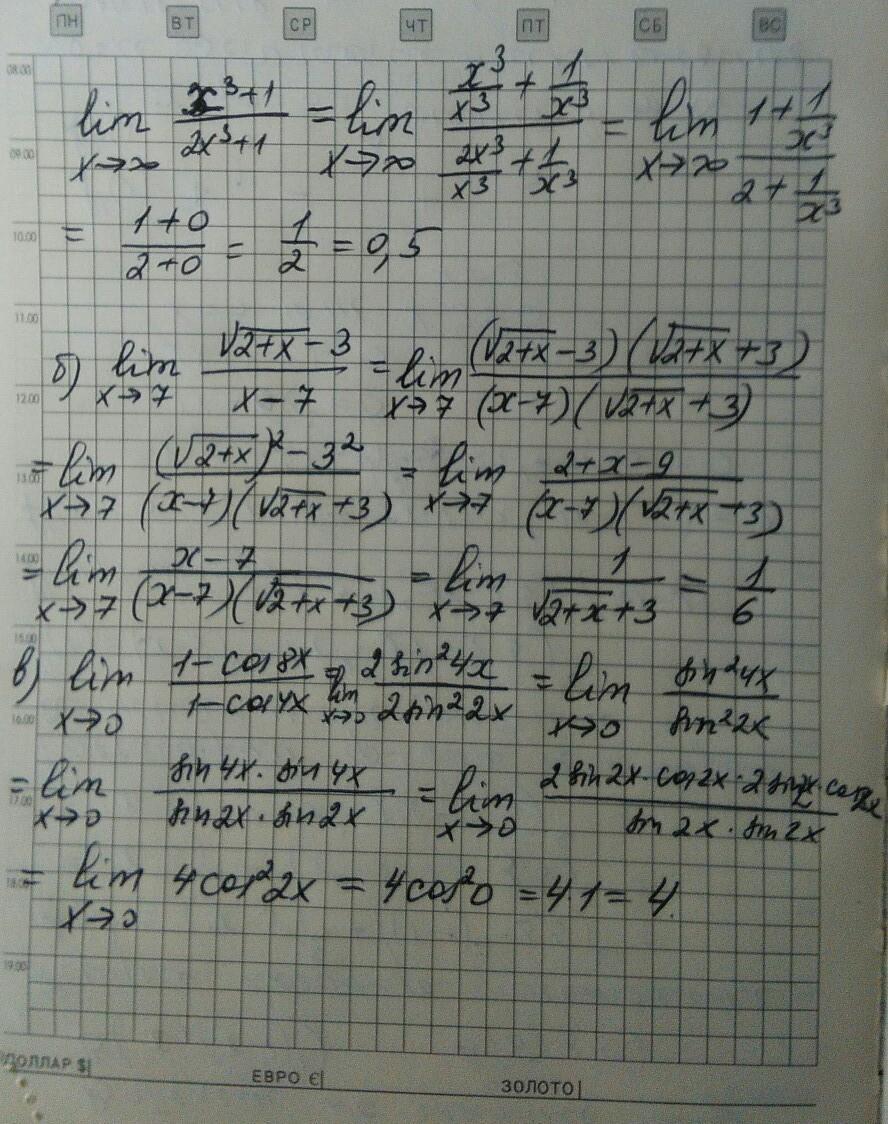 ПН ВТ СР ЧТ ПТ СБ ВС
08.00
lim x→∞ (x³+1)/(2x³+1) = lim x→∞ (x³/x³ + 1/x³)/(2x³/x³ + 1/x³) = lim x→∞ (1 + 1/x³)/(2 + 1/x³)
09.00
= (1+0)/(2+0) = 1/2 = 0,5
10.00
11.00
б) lim x→7 (√(2+x) − 3)/(x−7) = lim x→7 ((√(2+x) − 3)(√(2+x) + 3))/((x−7)(√(2+x) + 3))
12.00
= lim x→7 ((√(2+x))² − 3²)/((x−7)(√(2+x) + 3)) = lim x→7 (2+x−9)/((x−7)(√(2+x) + 3))
13.00
14.00
= lim x→7 (x−7)/((x−7)(√(2+x) + 3)) = lim x→7 1/(√(2+x) + 3) = 1/6
15.00
в) lim x→0 (1−cos8x)/(1−cos4x) = lim x→0 (2sin²4x)/(2sin²2x) = lim x→0 (sin²4x)/(sin²2x)
16.00
= lim x→0 (sin4x · sin4x)/(sin2x · sin2x) = lim x→0 (2sin2x · cos2x · 2sin2x · cos2x)/(sin2x · sin2x)
17.00
= lim x→0 4cos²2x = 4cos²0 = 4·1 = 4.
18.00
19.00
ДОЛЛАР $| ЕВРО €| ЗОЛОТО|